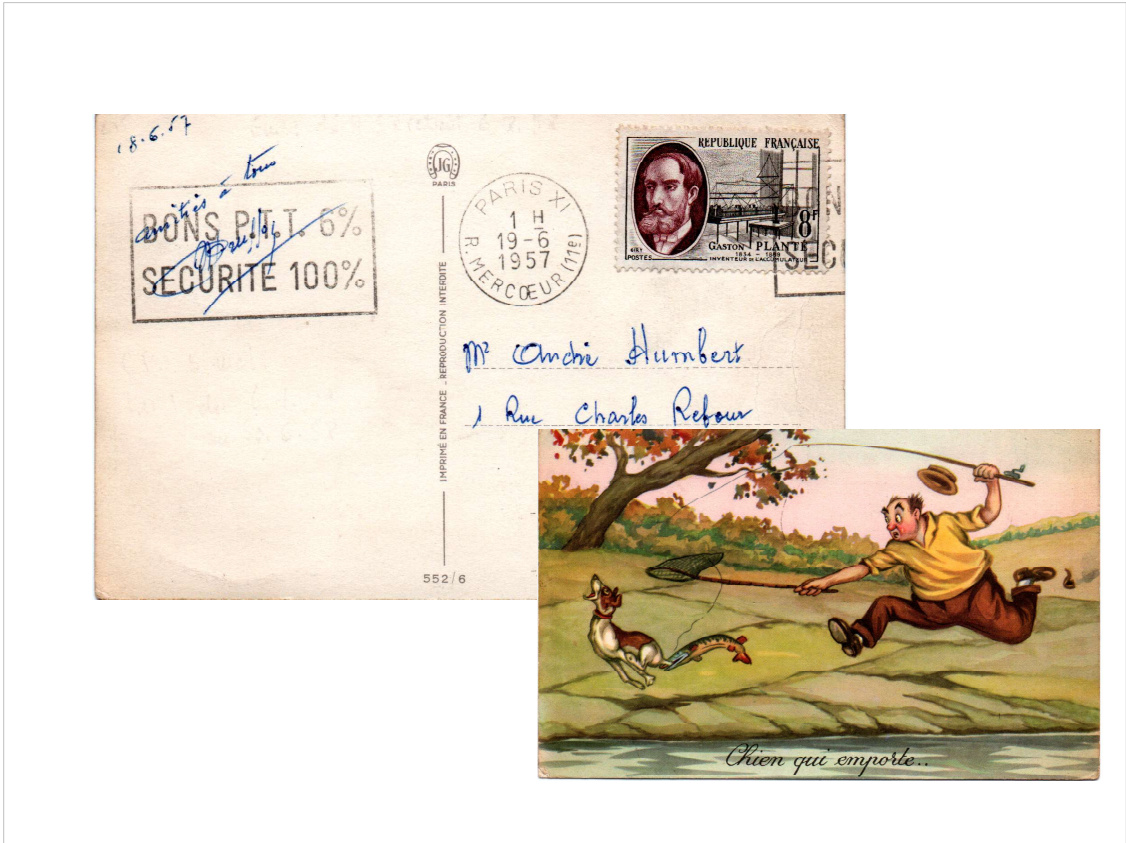 18.6.57
amitiés à tous
BONS P.T.T. 6%
SECURITE 100%
JG
PARIS
IMPRIMÉ EN FRANCE _ REPRODUCTION INTERDITE
552/6
PARIS XI
1 H
19-6
1957
R. MERCŒUR (11e)
REPUBLIQUE FRANÇAISE
8F
GASTON PLANTÉ
1834 - 1889
INVENTEUR DE L'ACCUMULATEUR
POSTES
N
SECU
Mr André Humbert
1 Rue Charles Refour
Chien qui emporte..